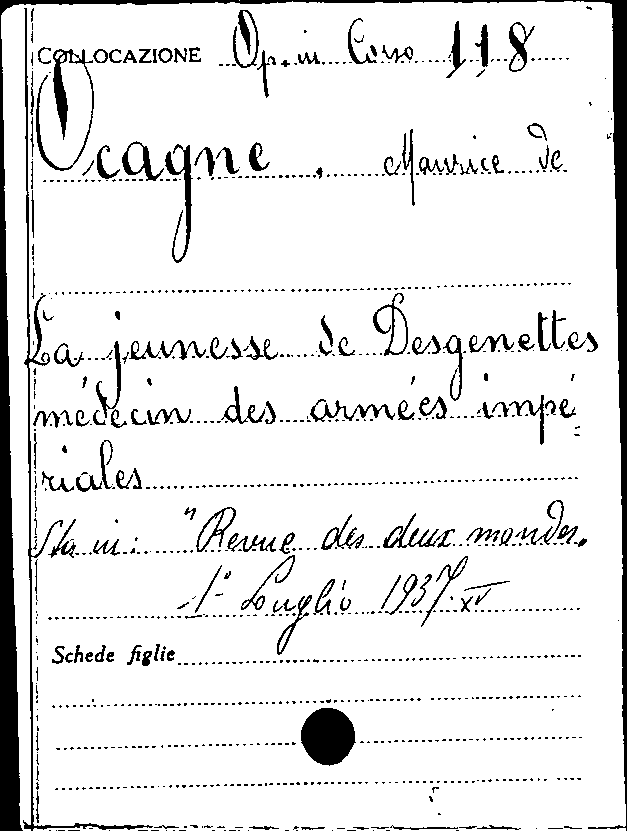 COLLOCAZIONE Op. in Corso 118
Ocagne, Maurice de
La jeunesse de Desgenettes
médecin des armées impé=
riales
Sta in: "Revue des deux mondes.
1° Luglio 1937. XV
Schede figlie